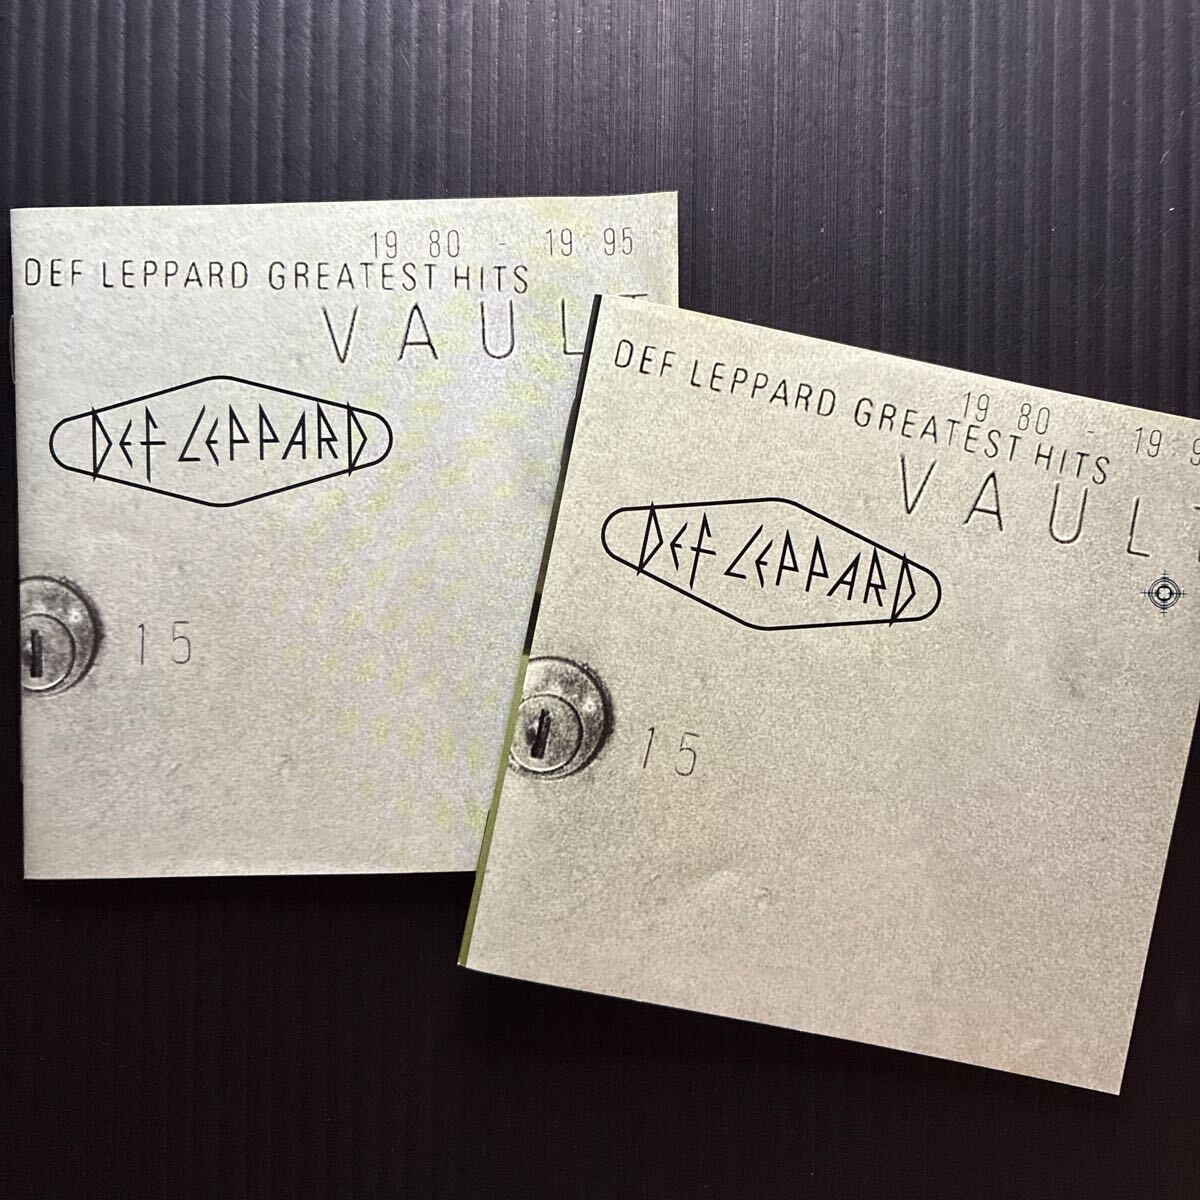 19 80 - 19 95
DEF LEPPARD GREATEST HITS
VAULT
DEF LEPPARD
15
DEF LEPPARD GREATEST HITS
19 80 - 19 9
VAULT
DEF LEPPARD
15